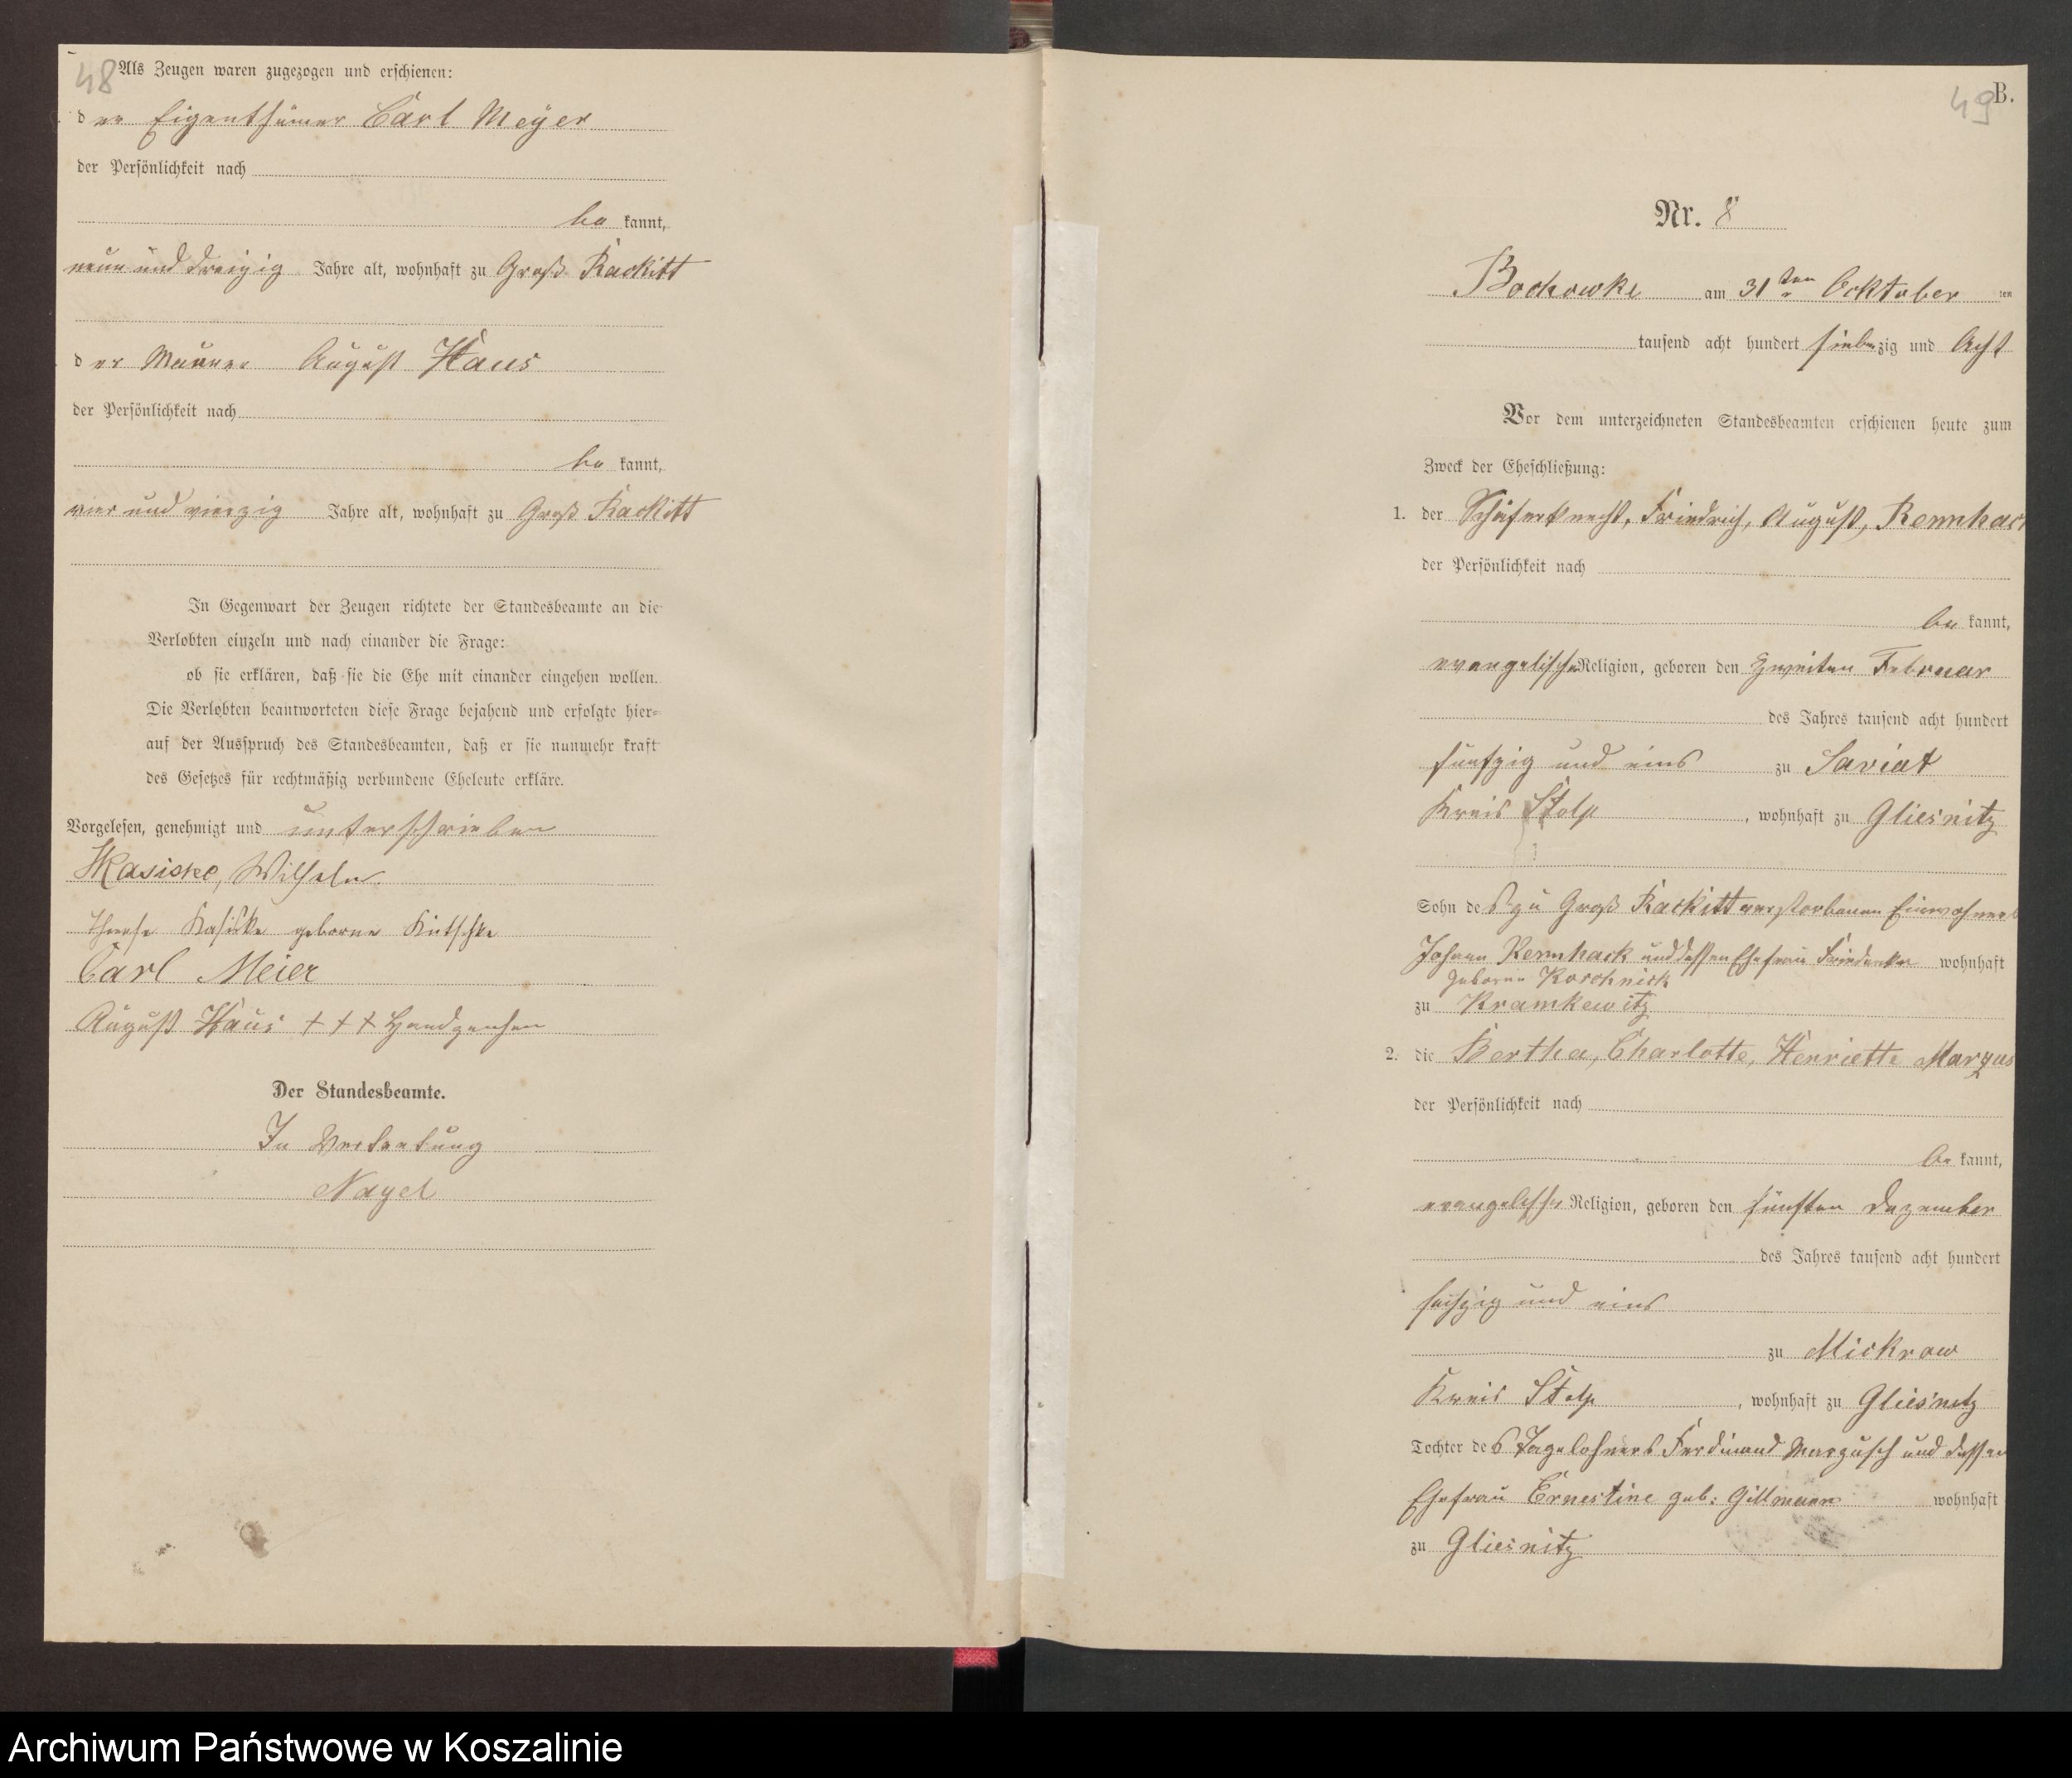 48
Als Zeugen waren zugezogen und erschienen:
der Eigenthümer Carl Meÿer
der Persönlichkeit nach
be kannt,
neun und dreizig Jahre alt, wohnhaft zu Groß Rackitt
der Maurer August Haus
der Persönlichkeit nach
be kannt,
vier und vierzig Jahre alt, wohnhaft zu Groß Rackitt
In Gegenwart der Zeugen richtete der Standesbeamte an die
Verlobten einzeln und nach einander die Frage:
ob sie erklären, daß sie die Ehe mit einander eingehen wollen.
Die Verlobten beantworteten diese Frage bejahend und erfolgte hier-
auf der Ausspruch des Standesbeamten, daß er sie nunmehr kraft
des Gesetzes für rechtmäßig verbundene Eheleute erkläre.
Vorgelesen, genehmigt und unterschrieben
Wilhelm
Kasiske geborne Kutschke
Carl Meier
August Haus +++ Handzeichen
Der Standesbeamte.
In Vertretung
Nagel
49
B.
Nr. 8
Bochowke am 31ten Ocktober ten
tausend acht hundert siebenzig und Acht
Vor dem unterzeichneten Standesbeamten erschienen heute zum
Zweck der Eheschließung:
1. der Schäferknecht, Friedrich, August, Remnhack
der Persönlichkeit nach
be kannt,
evangelischer Religion, geboren den Zweiten Februar
des Jahres tausend acht hundert
funfzig und eins zu Saviat
Kreis Stolp, wohnhaft zu Gliesnitz
Sohn des zu Groß Rackitt verstorbenen Einwohners
Johann Remnhack und dessen Ehefrau Friederike wohnhaft
geborne Koschnick
zu Kramkewitz
2. die Bertha, Charlotte, Henriette Margus
der Persönlichkeit nach
be kannt,
evangelischer Religion, geboren den fünften Dezember
des Jahres tausend acht hundert
sechzig und eins
zu Mickrow
Kreis Stolp, wohnhaft zu Gliesnitz
Tochter des Tagelöhners Ferdinand Margusch und dessen
Ehefrau Ernestine geb: Gillmann wohnhaft
zu Gliesnitz
Archiwum Państwowe w Koszalinie